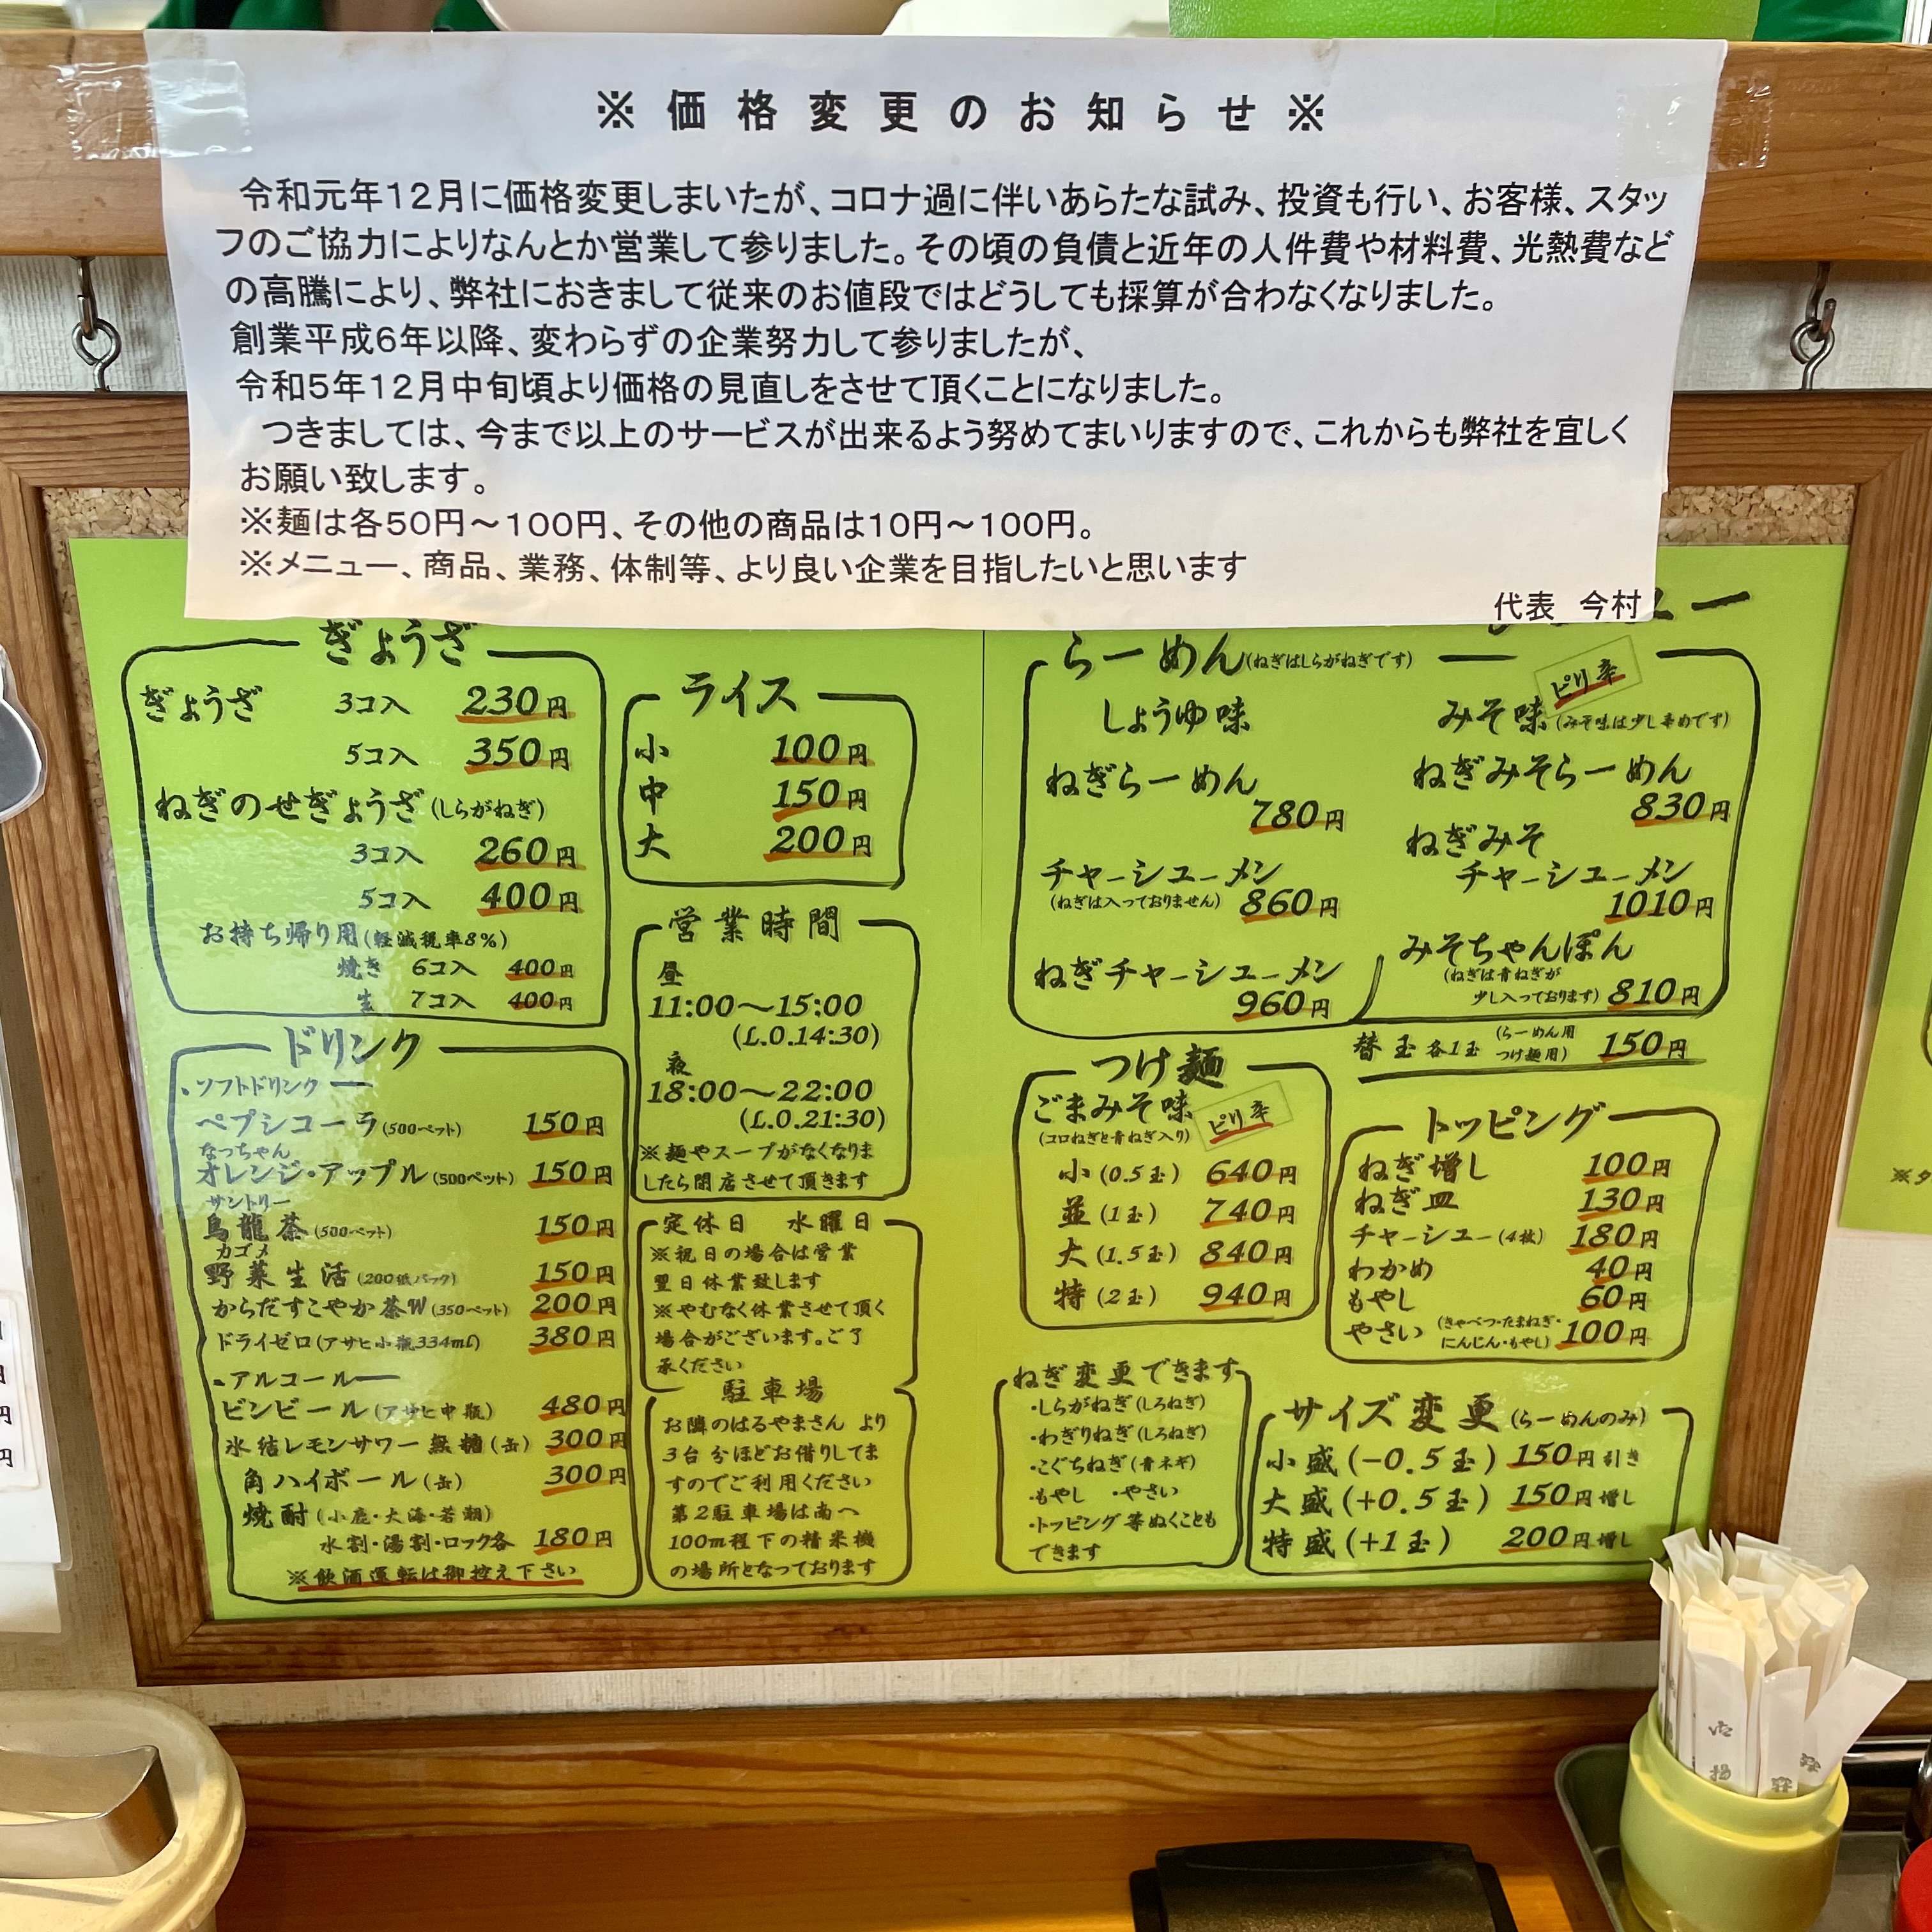 ※価格変更のお知らせ※
令和元年12月に価格変更しまいたが、コロナ過に伴いあらたな試み、投資も行い、お客様、スタッ
フのご協力によりなんとか営業して参りました。その頃の負債と近年の人件費や材料費、光熱費など
の高騰により、弊社におきまして従来のお値段ではどうしても採算が合わなくなりました。
創業平成6年以降、変わらずの企業努力して参りましたが、
令和5年12月中旬頃より価格の見直しをさせて頂くことになりました。
つきましては、今まで以上のサービスが出来るよう努めてまいりますので、これからも弊社を宜しく
お願い致します。
※麺は各50円～100円、その他の商品は10円～100円。
※メニュー、商品、業務、体制等、より良い企業を目指したいと思います
代表 今村
ぎょうざ
ぎょうざ 3コ入 230円
5コ入 350円
ねぎのせぎょうざ(しらがねぎ)
3コ入 260円
5コ入 400円
お持ち帰り用(軽減税率8%)
焼き 6コ入 400円
生 7コ入 400円
ドリンク
・ソフトドリンク
ペプシコーラ(500ペット) 150円
なっちゃん
オレンジ・アップル(500ペット) 150円
サントリー
烏龍茶(500ペット) 150円
カゴメ
野菜生活(200紙パック) 150円
からだすこやか茶W(350ペット) 200円
ドライゼロ(アサヒ小瓶334ml) 380円
・アルコール
ビンビール(アサヒ中瓶) 480円
氷結レモンサワー無糖(缶) 300円
角ハイボール(缶) 300円
焼酎(小鹿・大海・若潮)
水割・湯割・ロック各 180円
※飲酒運転は御控え下さい
ライス
小 100円
中 150円
大 200円
営業時間
昼
11:00～15:00
(L.O.14:30)
夜
18:00～22:00
(L.O.21:30)
※麺やスープがなくなりま
したら閉店させて頂きます
定休日 水曜日
※祝日の場合は営業
翌日休業致します
※やむなく休業させて頂く
場合がございます。ご了
承ください
駐車場
お隣のはるやまさん より
3台分ほどお借りしてま
すのでご利用ください
第2駐車場は南へ
100m程下の精米機
の場所となっております
らーめん(ねぎはしらがねぎです)
しょうゆ味
ねぎらーめん
780円
チャーシューメン
(ねぎは入っておりません) 860円
ねぎチャーシューメン
960円
ピリ辛
みそ味(みそ味は少し辛めです)
ねぎみそらーめん
830円
ねぎみそ
チャーシューメン
1010円
みそちゃんぽん
(ねぎは青ねぎが
少し入っております) 810円
替玉各1玉 (らーめん用
つけ麺用) 150円
つけ麺
ごまみそ味 ピリ辛
(コロねぎと青ねぎ入り)
小(0.5玉) 640円
並(1玉) 740円
大(1.5玉) 840円
特(2玉) 940円
トッピング
ねぎ増し 100円
ねぎ皿 130円
チャーシュー(4枚) 180円
わかめ 40円
もやし 60円
やさい (きゃべつ・たまねぎ・
にんじん・もやし) 100円
ねぎ変更できます
・しらがねぎ(しろねぎ)
・わぎりねぎ(しろねぎ)
・こぐちねぎ(青ネギ)
・もやし ・やさい
・トッピング等ぬくことも
できます
サイズ変更(らーめんのみ)
小盛(-0.5玉) 150円引き
大盛(+0.5玉) 150円増し
特盛(+1玉) 200円増し